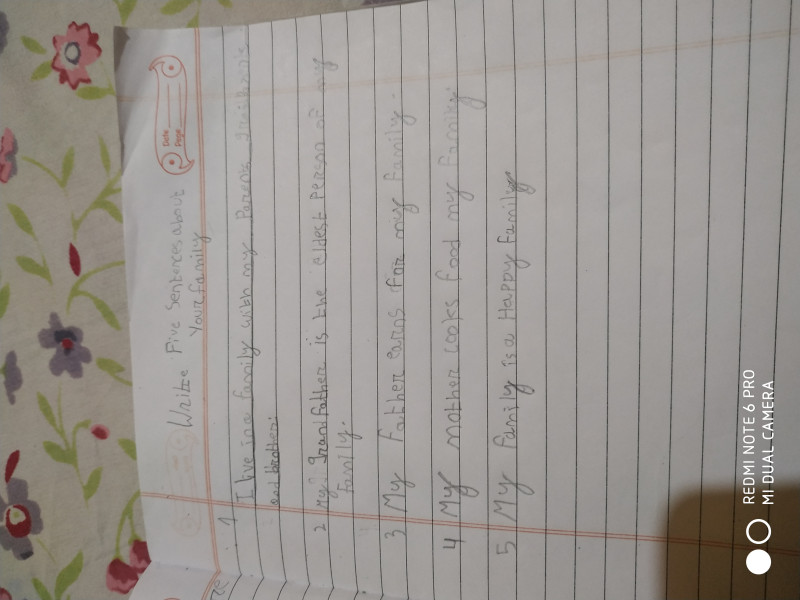 Date
Page
Write Five Sentences about
Your family
1 I live in a family with my Parents
and brother.
2 My grandfather is the eldest Person of my
family.
3 My father earns for my family.
4 My mother cooks food my family.
5 My family is a Happy family
REDMI NOTE 6 PRO
MI DUAL CAMERA